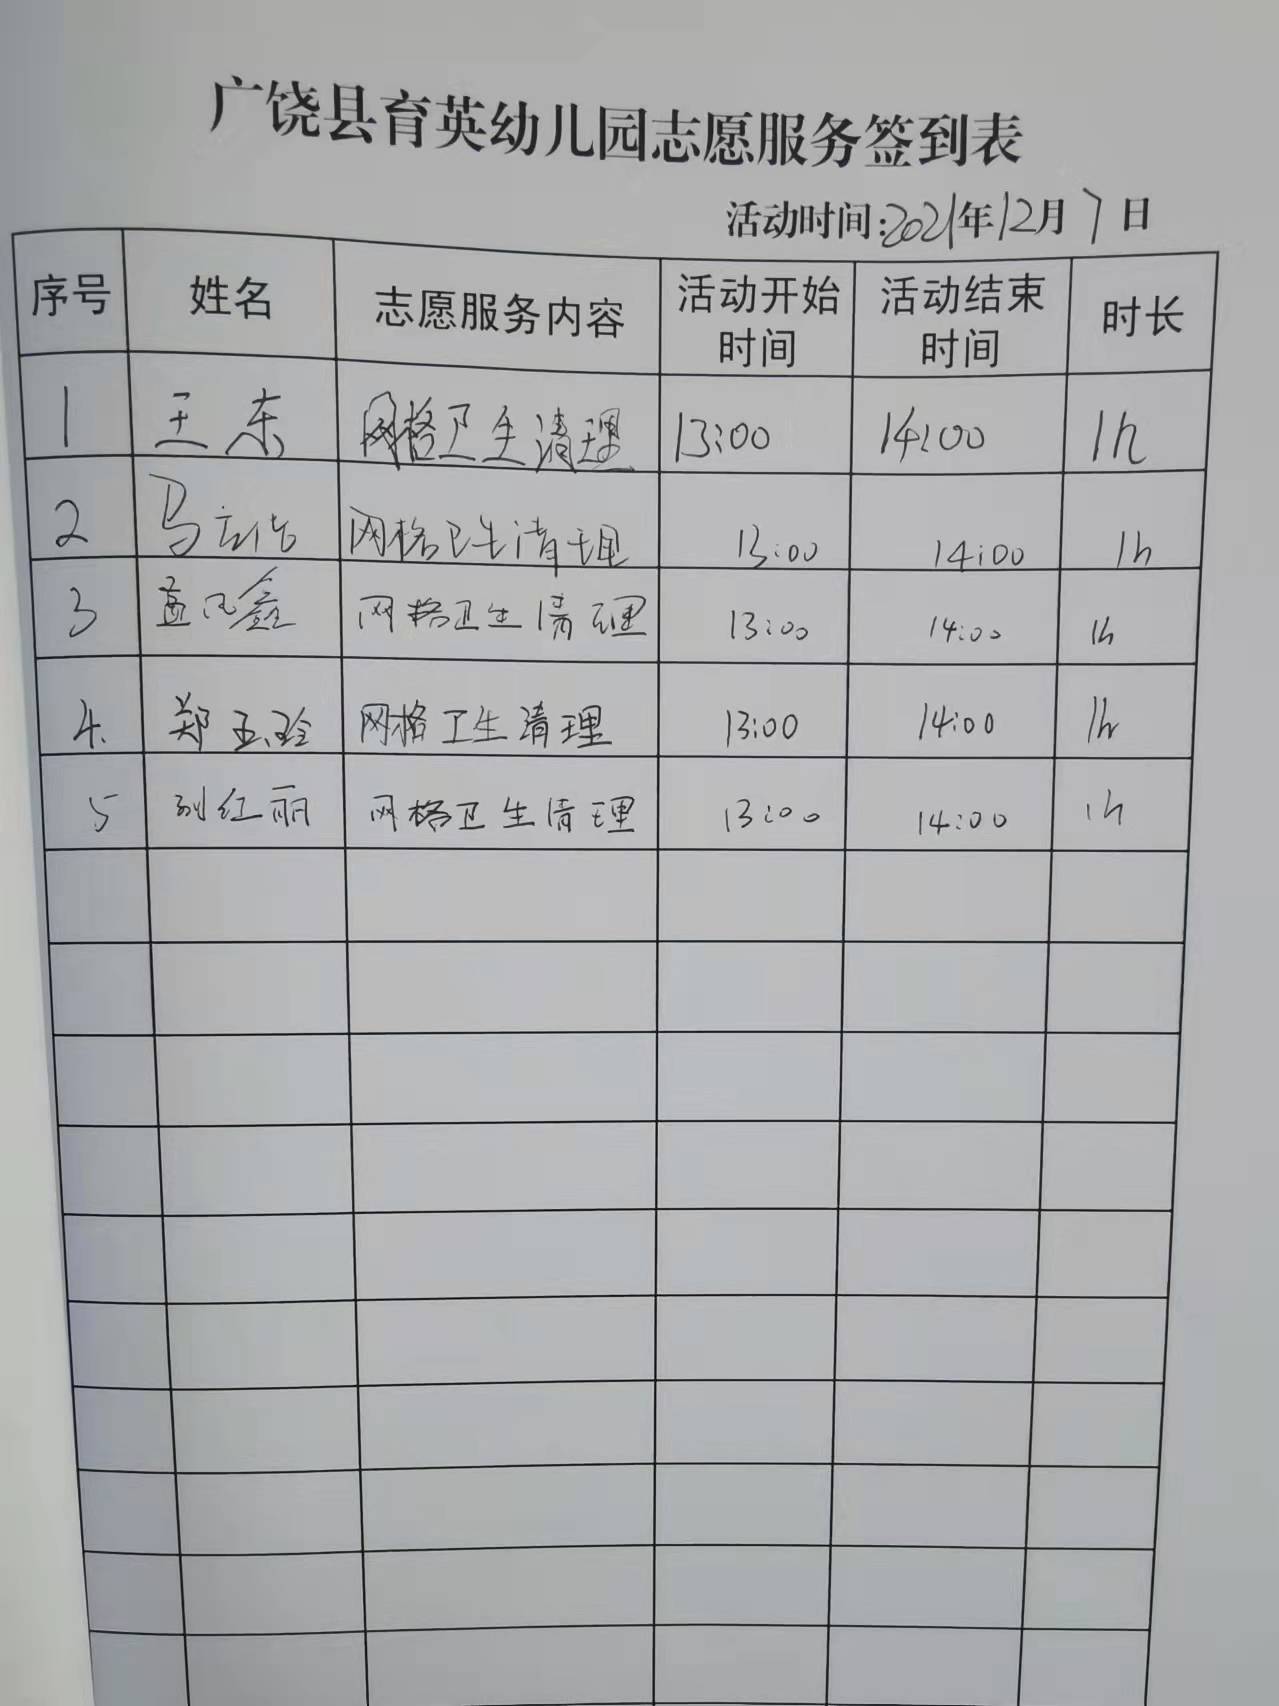 广饶县育英幼儿园志愿服务签到表
活动时间:2021年12月7日
序号 姓名 志愿服务内容 活动开始时间 活动结束时间 时长
1 王东 网格卫生清理 13:00 14:00 1h
2 马 网格卫生清理 13:00 14:00 1h
3 网格卫生清理 13:00 14:00 1h
4. 郑玉玲 网格卫生清理 13:00 14:00 1h
5 刘红丽 网格卫生清理 13:00 14:00 1h